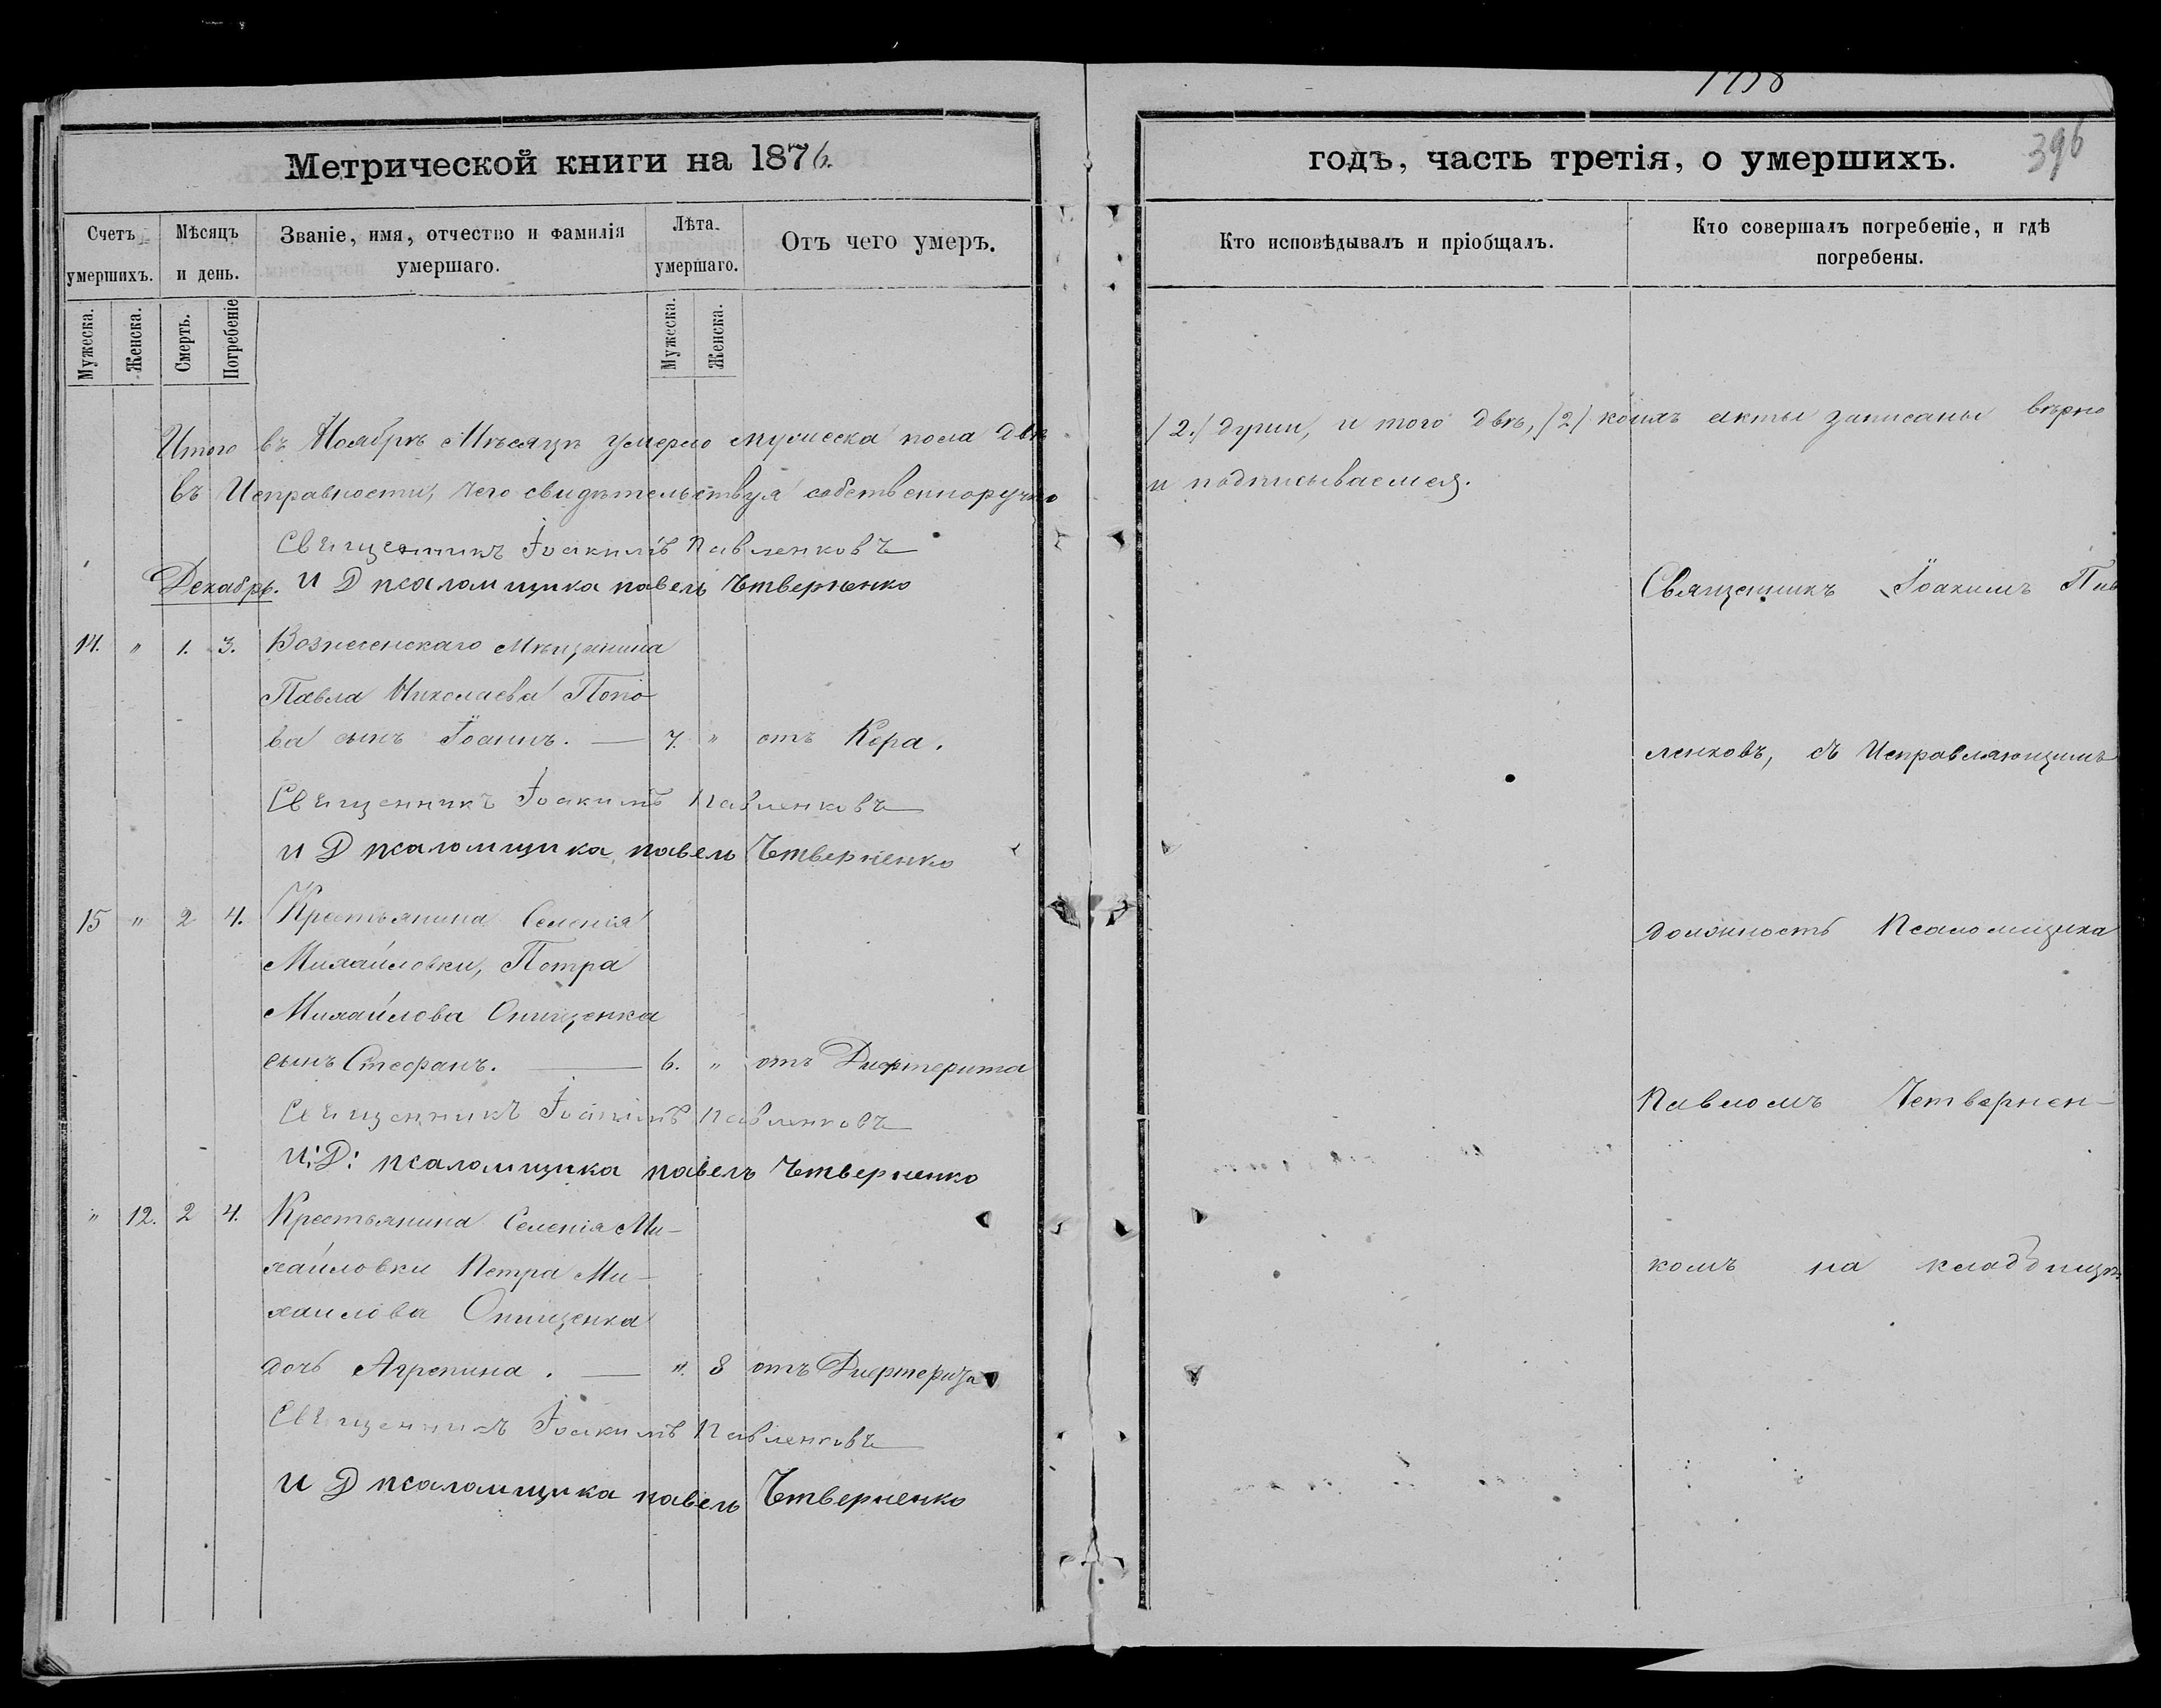 1738
396
Метрической книги на 1876.
годъ, часть третія, о умершихъ.
Счетъ умершихъ.
Мѣсяцъ и день.
Званіе, имя, отчество и фамилія умершаго.
Лѣта умершаго.
Отъ чего умеръ.
Кто исповѣдывалъ и пріобщалъ.
Кто совершалъ погребеніе, и гдѣ погребены.
Мужеска.
Женска.
Смерть.
Погребеніе
Мужеска.
Женска.
Итого въ Ноябрѣ Мѣсяцѣ умерло мужеска пола двѣ /2./ души, и того двѣ, /2/ коихъ акты записаны вѣрно
въ Исправности, чего свидѣтельствуя собственноручно и подписываемся.
Священникъ Іоакимъ Павленковъ
И Д псаломщика павелъ Четверненко
Декабрь.
14. " 1. 3. Вознесенскаго Мѣщанина
Павла Николаева Попо
ва сынъ Іоаннъ. — 7. " отъ Кора.
Священникъ Іоакимъ Павленковъ
и Д псаломщика павелъ Четверненко
15 " 2 4. Крестьянина Селенія
Михайловки, Петра
Михайлова Онищенка
сынъ Стефанъ. — 6. " отъ Дифтерита
Священникъ Іоакимъ Павленковъ
И: Д: псаломщика павелъ Четверненко
" 12. 2 4. Крестьянина Селенія Ми-
хайловки Петра Ми-
хаилова Онищенка
дочь Агрепина. — ". 8 отъ Дифтерита
Священникъ Іоакимъ Павленковъ
и Д псаломщика павелъ Четверненко
Священникъ Іоакимъ Пав
ленковъ, съ Исправляющимъ
должность Псаломщика
Павломъ Четвернен-
комъ на кладбищѣ.